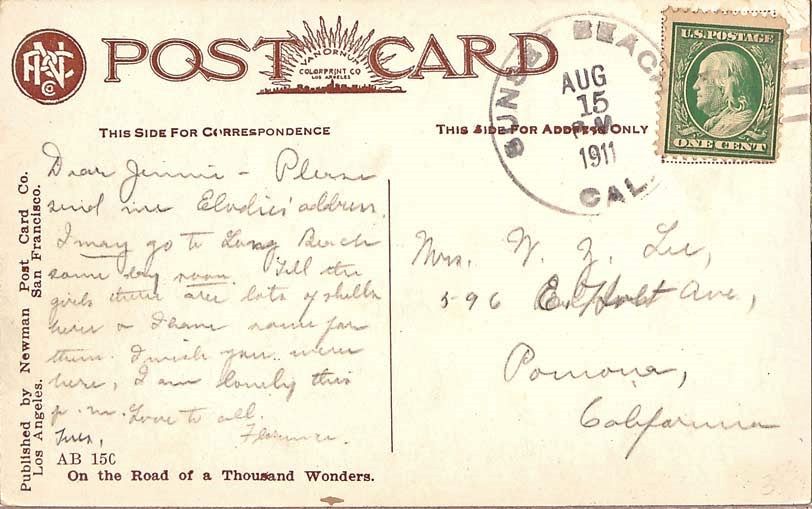 POST CARD
VAN ORNUM
COLORPRINT CO
LOS ANGELES
SUNSET BEACH
AUG
15
P.M.
1911
CAL.
U.S. POSTAGE
ONE CENT
THIS SIDE FOR CORRESPONDENCE
THIS SIDE FOR ADDRESS ONLY
Dear Jennie - Please
send me Elodies' address.
I may go to Long Beach
some day soon. Tell the
girls there are lots of shells
here & I have some for
them. I wish you were
here, I am lonely this
p.m. Love to all.
Tues, Florence.
Mrs. W. Z. Lee,
596 E. Holt Ave,
Pomona,
California
Published by Newman Post Card Co.
Los Angeles. San Francisco.
AB 150
On the Road of a Thousand Wonders.